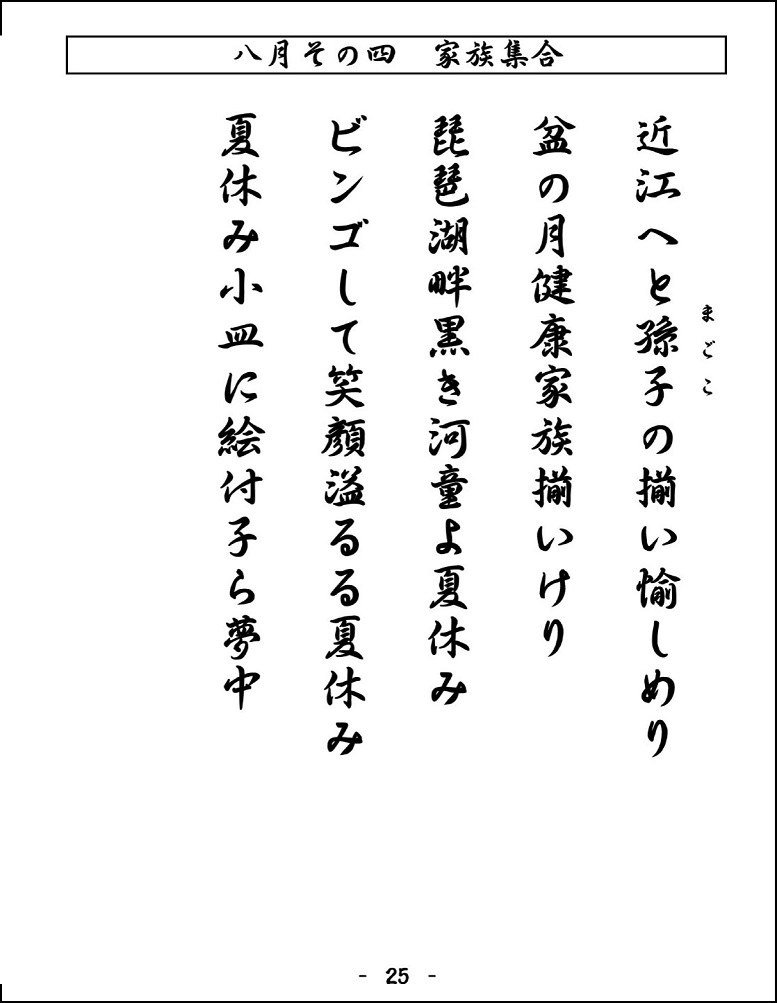 八月その四　家族集合
近江へと孫子の揃い愉しめり
まごこ
盆の月健康家族揃いけり
琵琶湖畔黒き河童よ夏休み
ビンゴして笑顔溢るる夏休み
夏休み小皿に絵付子ら夢中
- 25 -